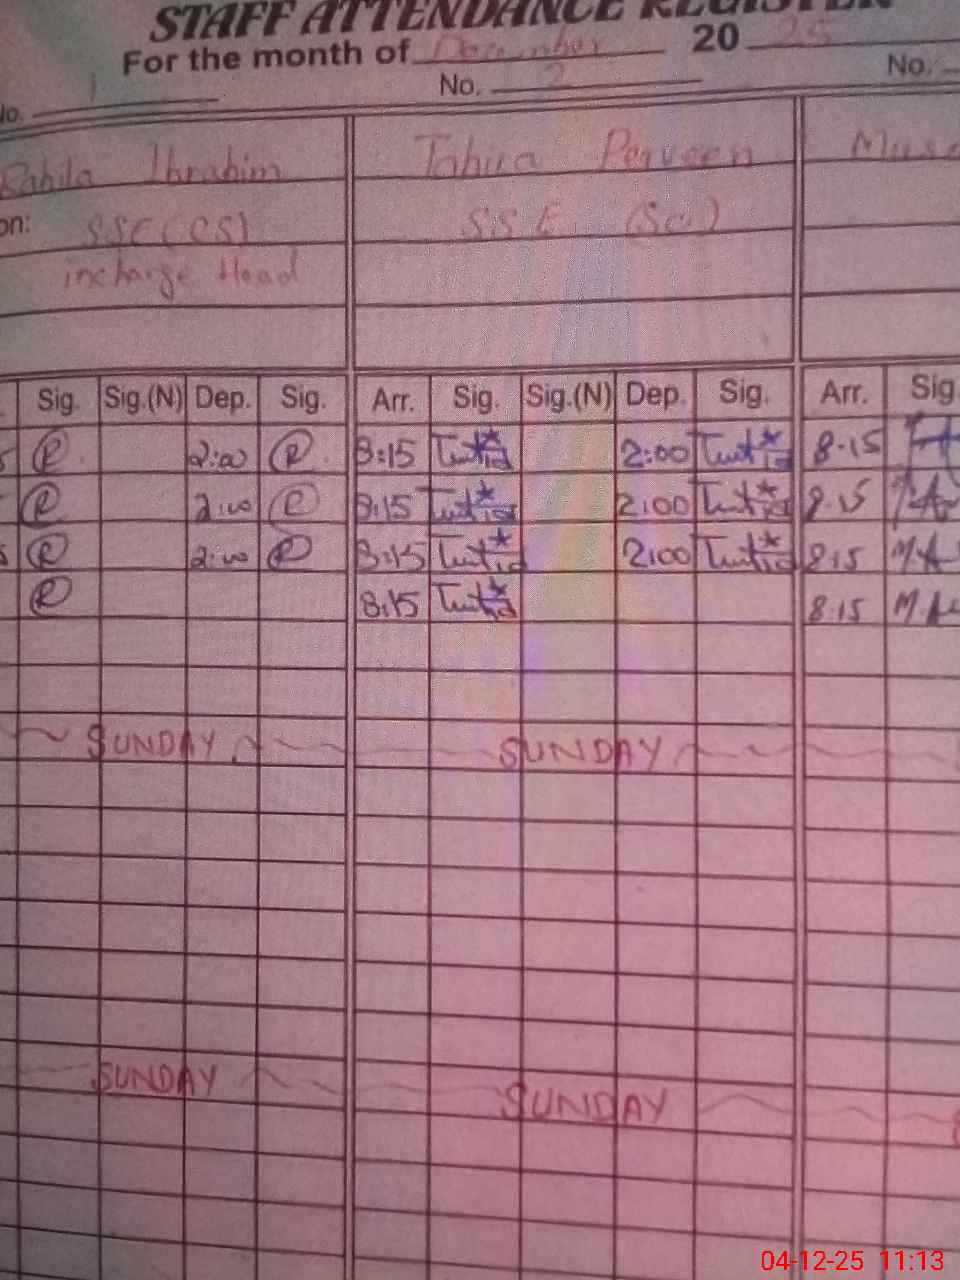 STAFF ATTENDANCE REGISTER
For the month of December 20 25
No. 1 No. 2 No.
Rahila Ibrahim Tahira Parveen
on: SSE(CS) S.S.E (Sc.)
incharge Head
Sig. Sig.(N) Dep. Sig. Arr. Sig. Sig.(N) Dep. Sig. Arr. Sig.
R 2:00 R 8:15 2:00 8.15
R 2:00 R 8:15 2:00 8.15
R 2:00 R 8:15 2:00 8.15
R 8:15 8.15
SUNDAY SUNDAY
SUNDAY SUNDAY
04-12-25 11:13